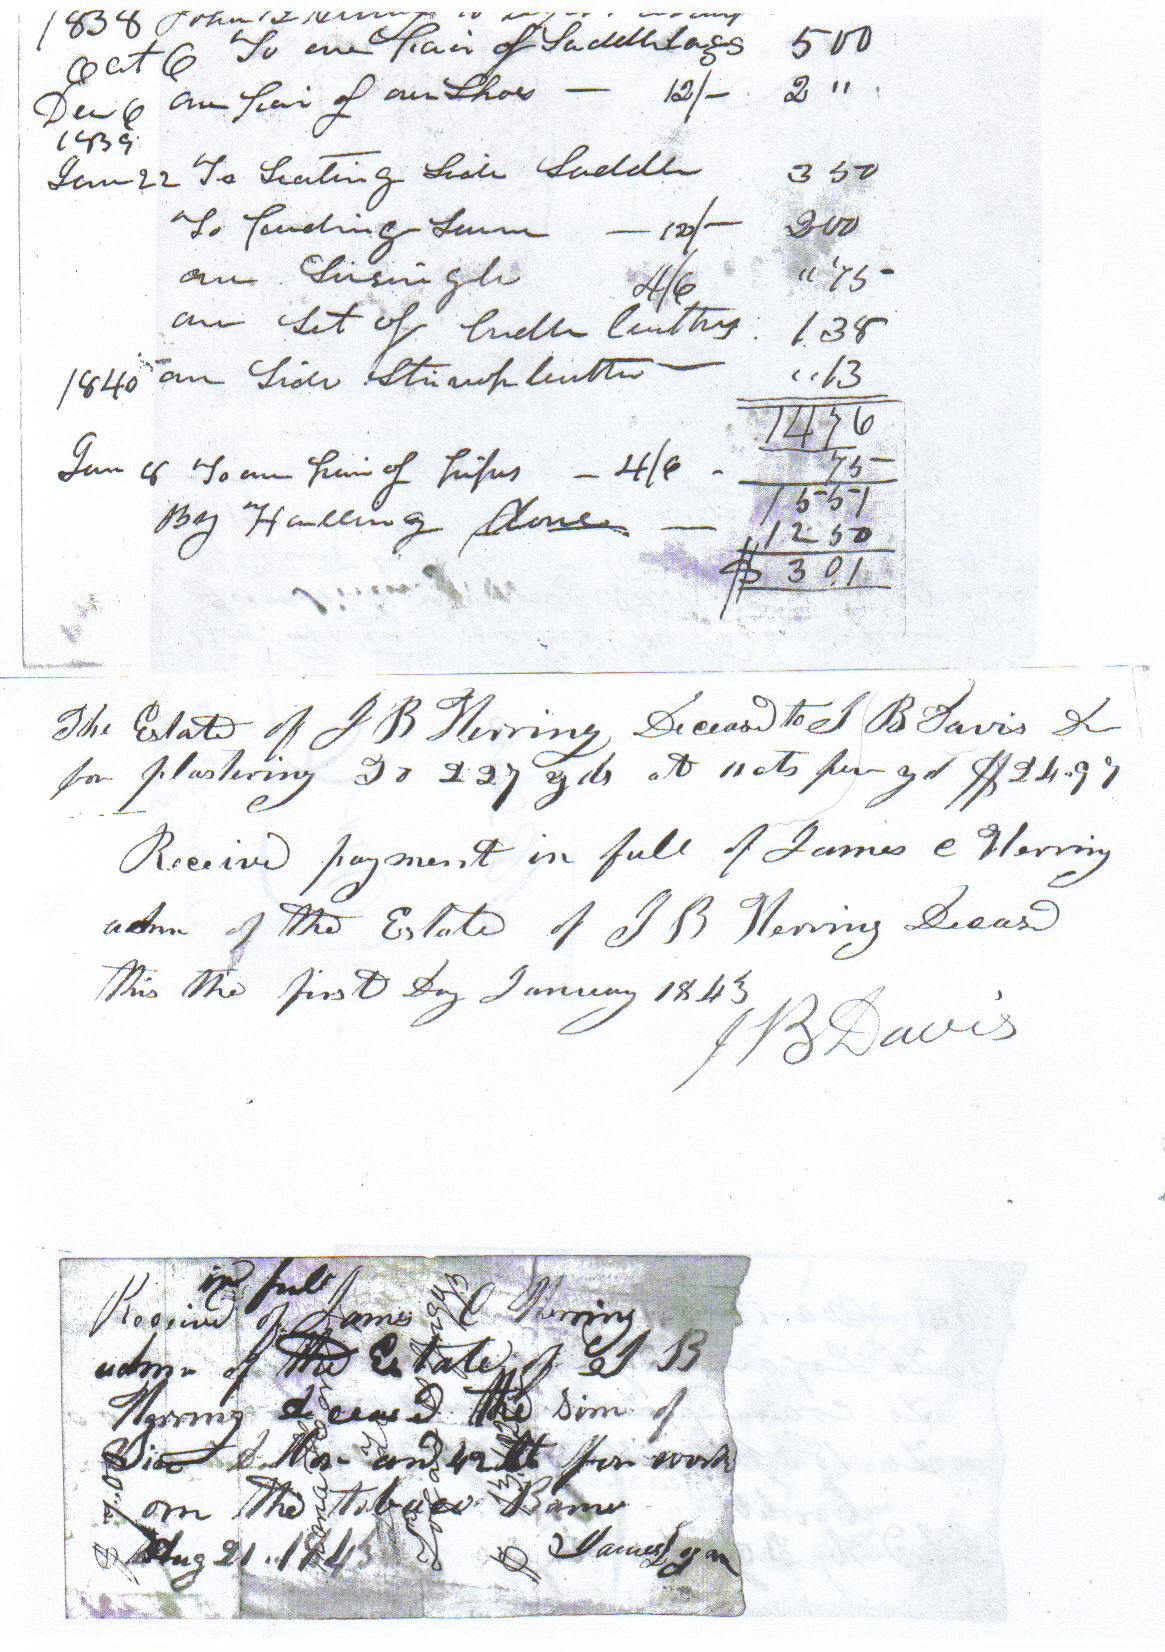 1838 John B Herring to
Oct 6 To one Pair of Saddlebags 5 00
Dec 6 one Pair of over Shoes — 12/- 2 "
1839
Jan 22 To Seating Side Saddle 3 50
To — 12/- 200
one Sirsingle 4/6 " 75
one Set of bridle leathers 1.38
1840 one Side Stirup leather — " 13
1476
Jan 8 To one pair of — 4/6 - 75
1551
By Hauling Stone — 12 50
$ 3 01
The Estate of J B Herring Deceasd to J B Davis Dr
for plastering To 227 yds at 11 cts per yd $24.97
Received payment in full of James C Herring
admr of the Estate of J B Herring Deceasd
this the first Day January 1843
J B Davis
in full
Received of James C Herring
admr of the Estate of J B
Herring deceasd the sum of
and 42 for work
on the tobaco Barne
Aug 21 1843 James